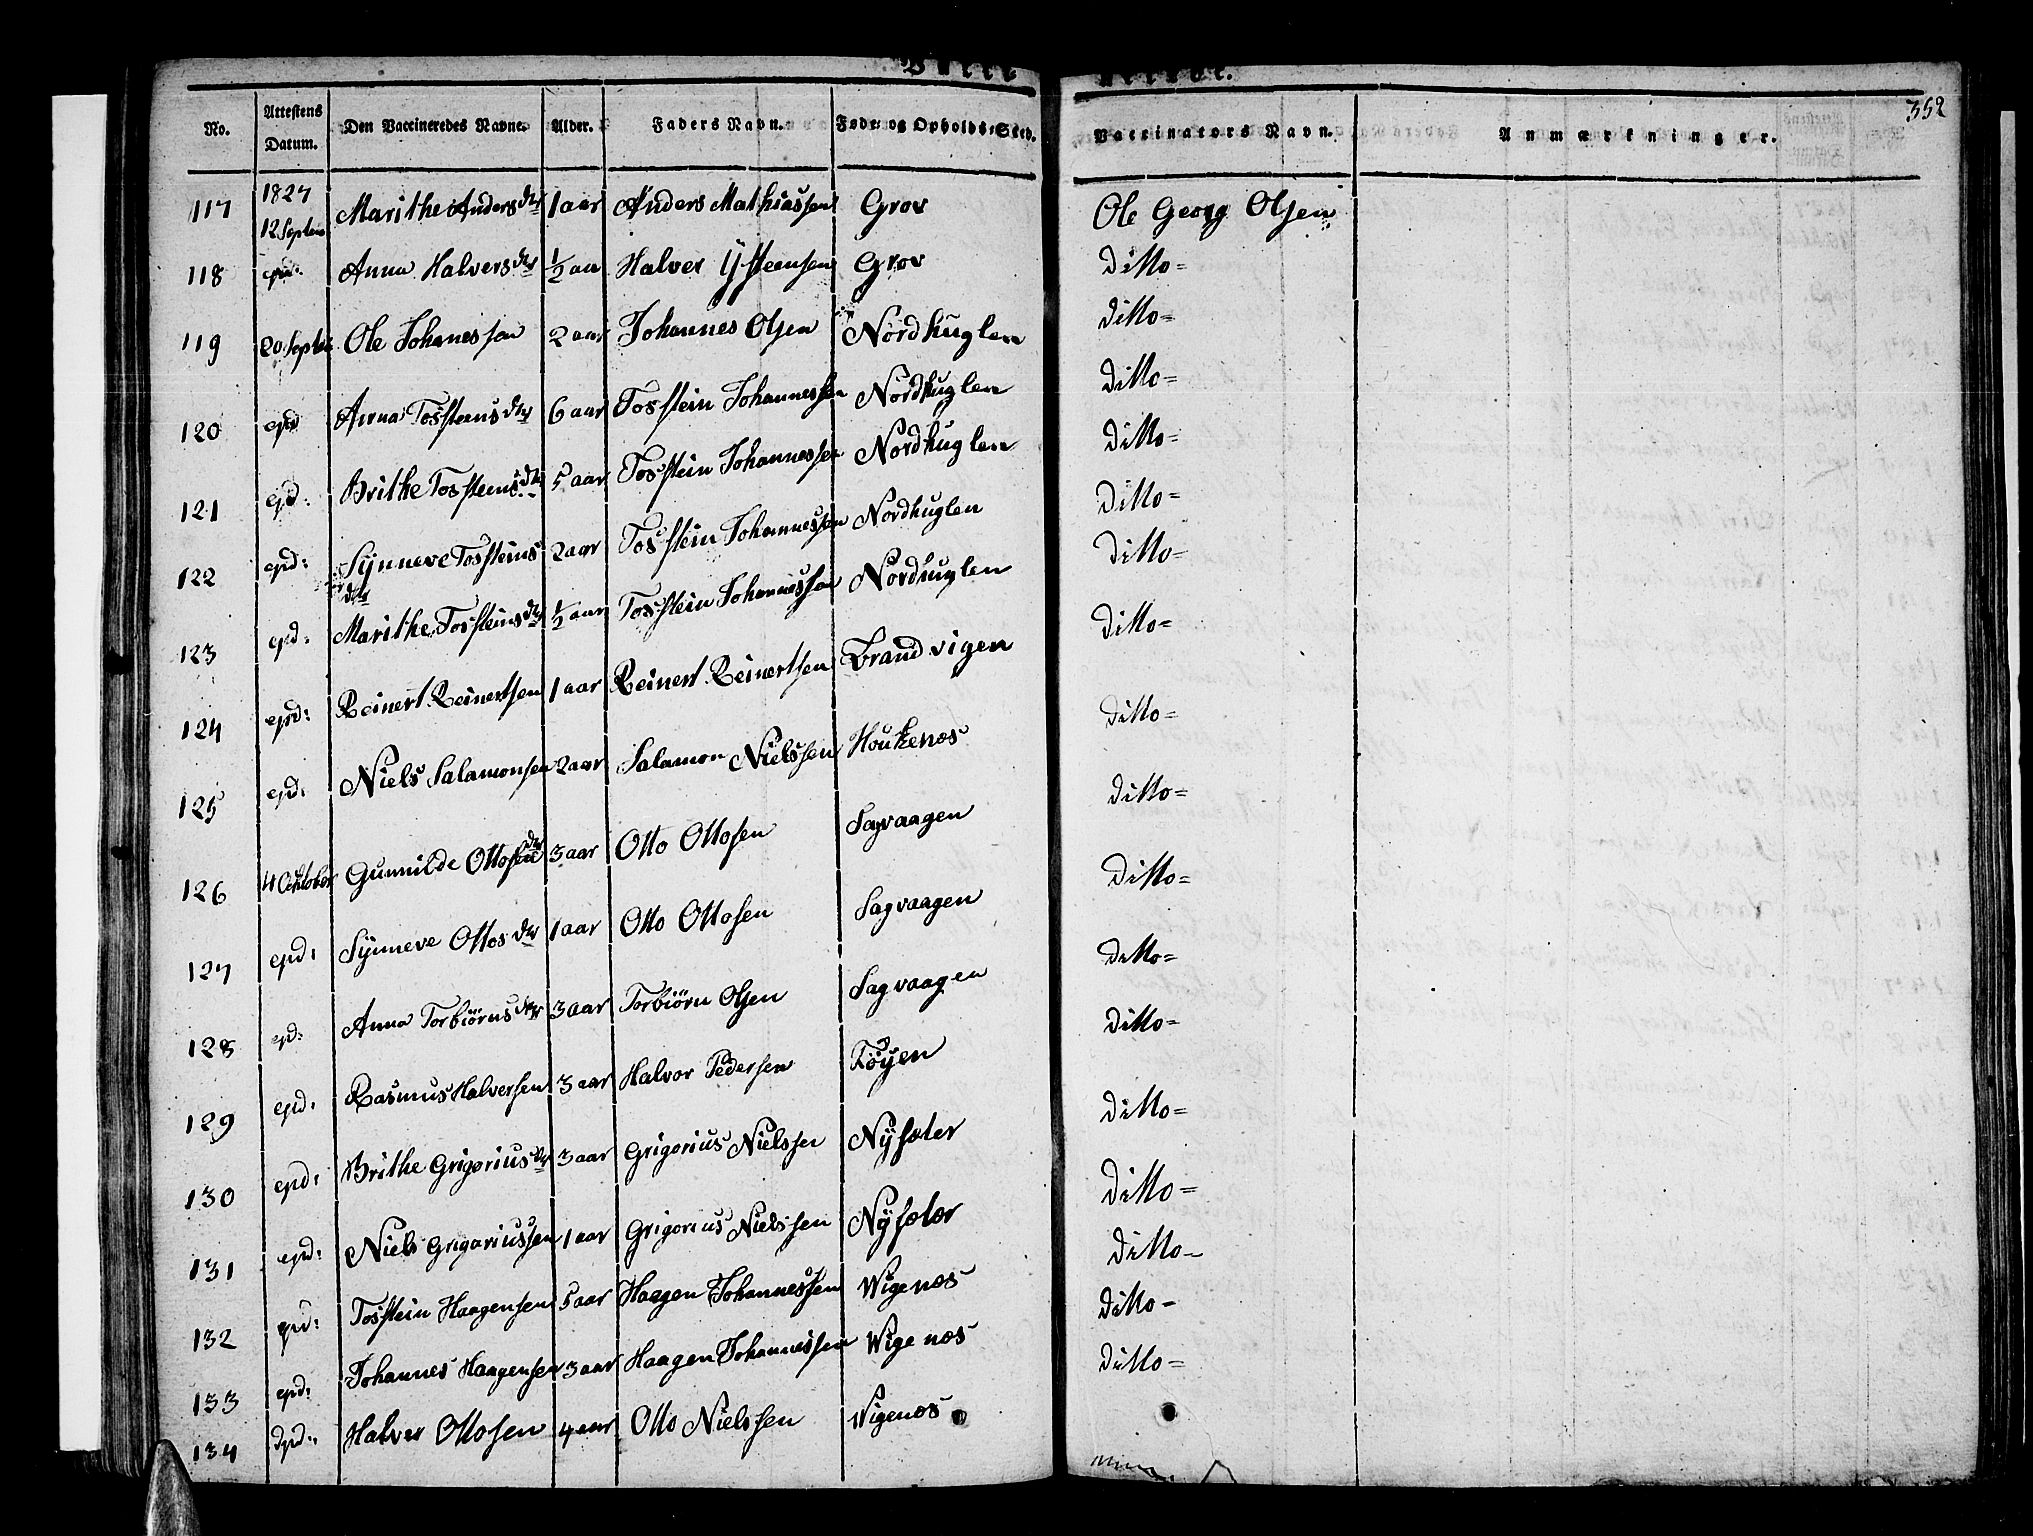 352
No. Attestens Datum. Den Vaccineredes Navne. Alder. Faders Navn. Føde- og Opholds-Sted. Vaccinators Navn. Anmærkninger.
117 1827 12 Septem Marithe Anders dtr 1 aar Anders Mathiassen Grov Ole Georg Olsen
118 epd: Anna Halvers dtr 1/2 aar Halver Ÿsteensen Grov ditto=
119 20 Septbr Ole Johanessen 2 aar Johannes Olsen Nordhuglen ditto=
120 epd Anna Tossteins dtr 6 aar Tosstein Johannessen Nordhuglen ditto=
121 epd. Brithe Tossteins dtr 5 aar Tosstein Johannessen Nordhuglen ditto=
122 epd: Sÿnneve Tossteins dtr 2 aar Tosstein Johannessen Nordhuglen ditto=
123 epd: Marithe Tossteins dtr 1/2 aar Tosstein Johannessen Nordhuglen ditto=
124 epd: Reinert Reinertsen 1 aar Reinert Reinertsen Brandvigen ditto=
125 epd: Niels Salamonsen 2 aar Salamon Nielssen Houkenæs ditto=
126 4 October Gunnilde Ottosen dtr 3 aar Otto Ottosen Sagvaagen ditto=
127 epd: Sÿnneve Ottos dtr 1 aar Otto Ottosen Sagvaagen ditto=
128 epd: Anna Torbiörns dtr 3 aar Torbiörn Olsen Sagvaagen ditto=
129 epd: Rasmus Halversen 3 aar Halvor Pedersen Föÿen ditto=
130 epd: Brithe Grigorius dtr 3 aar Grigorius Nielssen Nÿsæter ditto=
131 epd: Niels Grigoriussen 1 aar Grigorius Nielssen Nÿsæter ditto=
132 epd: Tosstein Haagensen 5 aar Haagen Johannessen Wigenæs ditto=
133 epd: Johannes Haagensen 3 aar Haagen Johannessen Wigenæs ditto=
134 epd: Halver Ottosen 4 aar Otto Nielssen Wigenæs ditto=